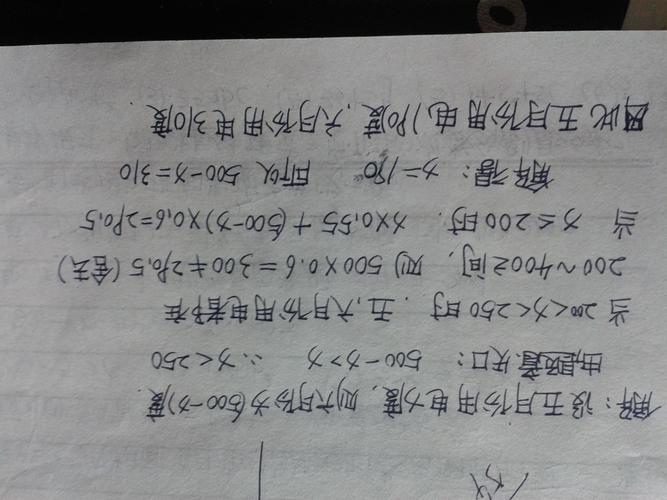 解：设五月份用电x度，则六月份为(500-x)度.
由题意知：500-x>x ∴ x<250
当 200<x<250时，五,六月份用电都在
200~400之间，则 500×0.6=300≠290.5(舍去)
当 x≤200时，x×0.55+(500-x)×0.6=290.5
解得：x=190 所以 500-x=310
因此五月份用电190度，六月份用电310度。